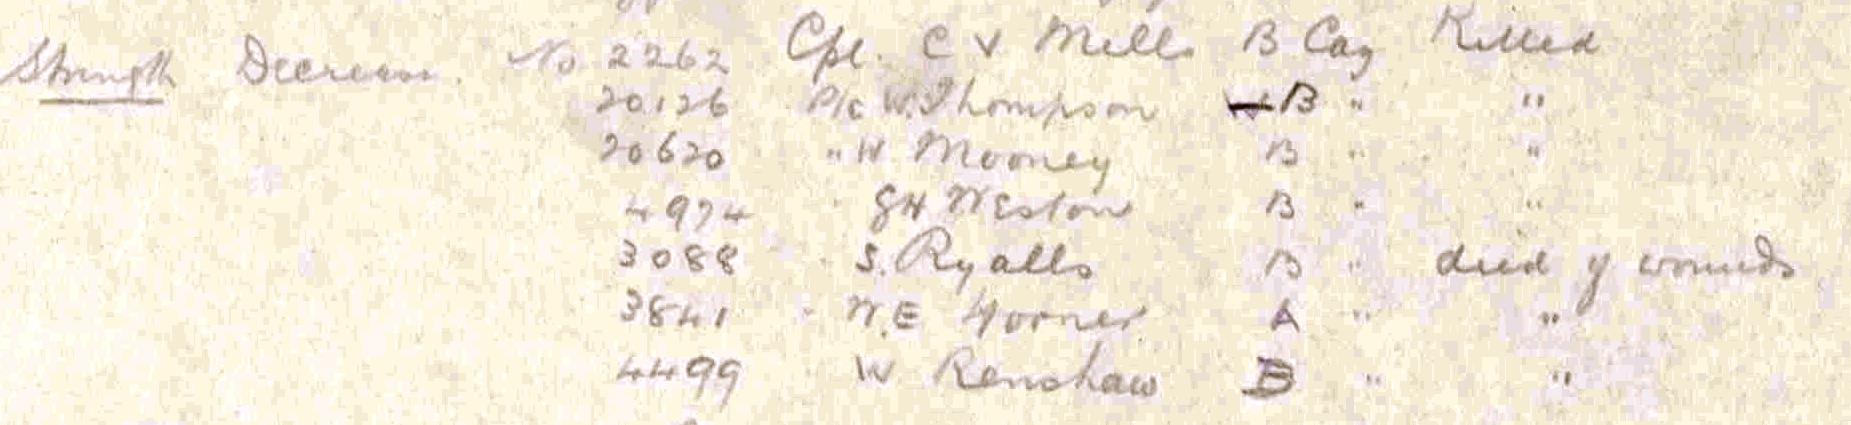 Strength Decrease. No 2262 Cpl. C V Mills B Coy Killed
20126 Pte W. Thompson B " "
20620 " H Mooney B " "
4974 " G H Weston B " "
3088 " S. Ryalls B " died of wounds
3841 " W.E A " "
4499 W Renshaw B " "